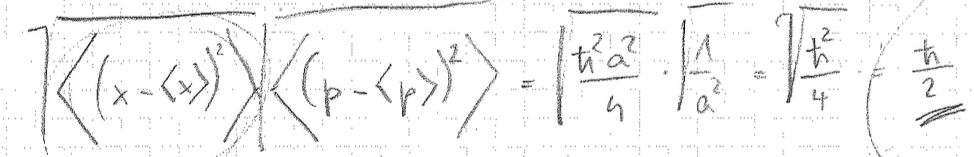 √⟨(x-⟨x⟩)²⟩ √⟨(p-⟨p⟩)²⟩ = √(ħ²a²/4) · √(1/a²) = √(ħ²/4) = ħ/2